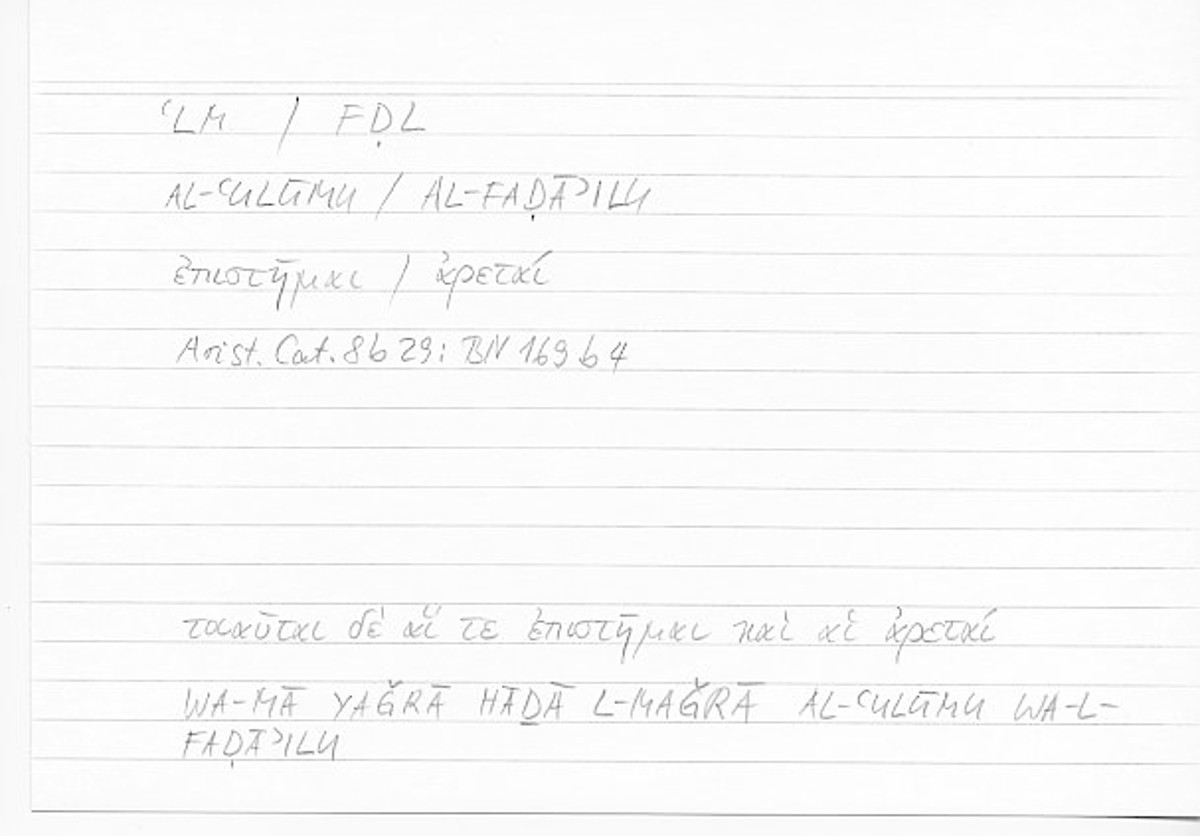 ʿLM / FḌL
AL-ʿULŪMU / AL-FAḌĀʾILU
ἐπιστῆμαι / ἀρεταί
Arist. Cat. 8b 29; BN 169 b 4
τοιαῦται δὲ αἵ τε ἐπιστῆμαι καὶ αἱ ἀρεταί
WA-MĀ YAǦRĀ HĀḎĀ L-MAǦRĀ AL-ʿULŪMU WA-L-
FAḌĀʾILU